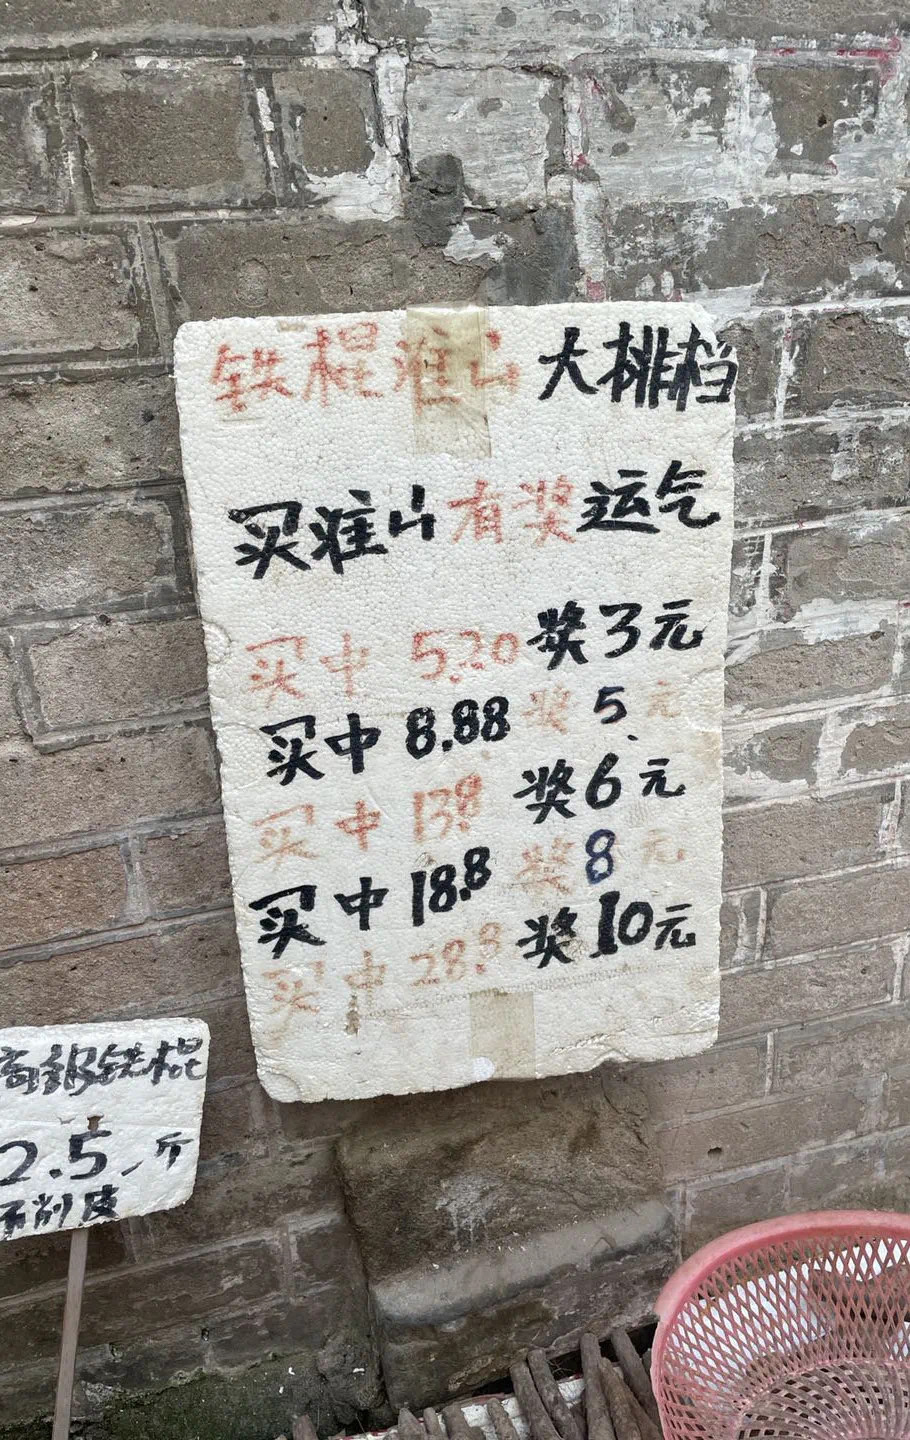 铁棍淮山大排档
买淮山有奖运气
买中5.20奖3元
买中8.88奖5元
买中13.8奖6元
买中18.8奖8元
买中28.8奖10元
高钢铁棍
2.5一斤
不削皮